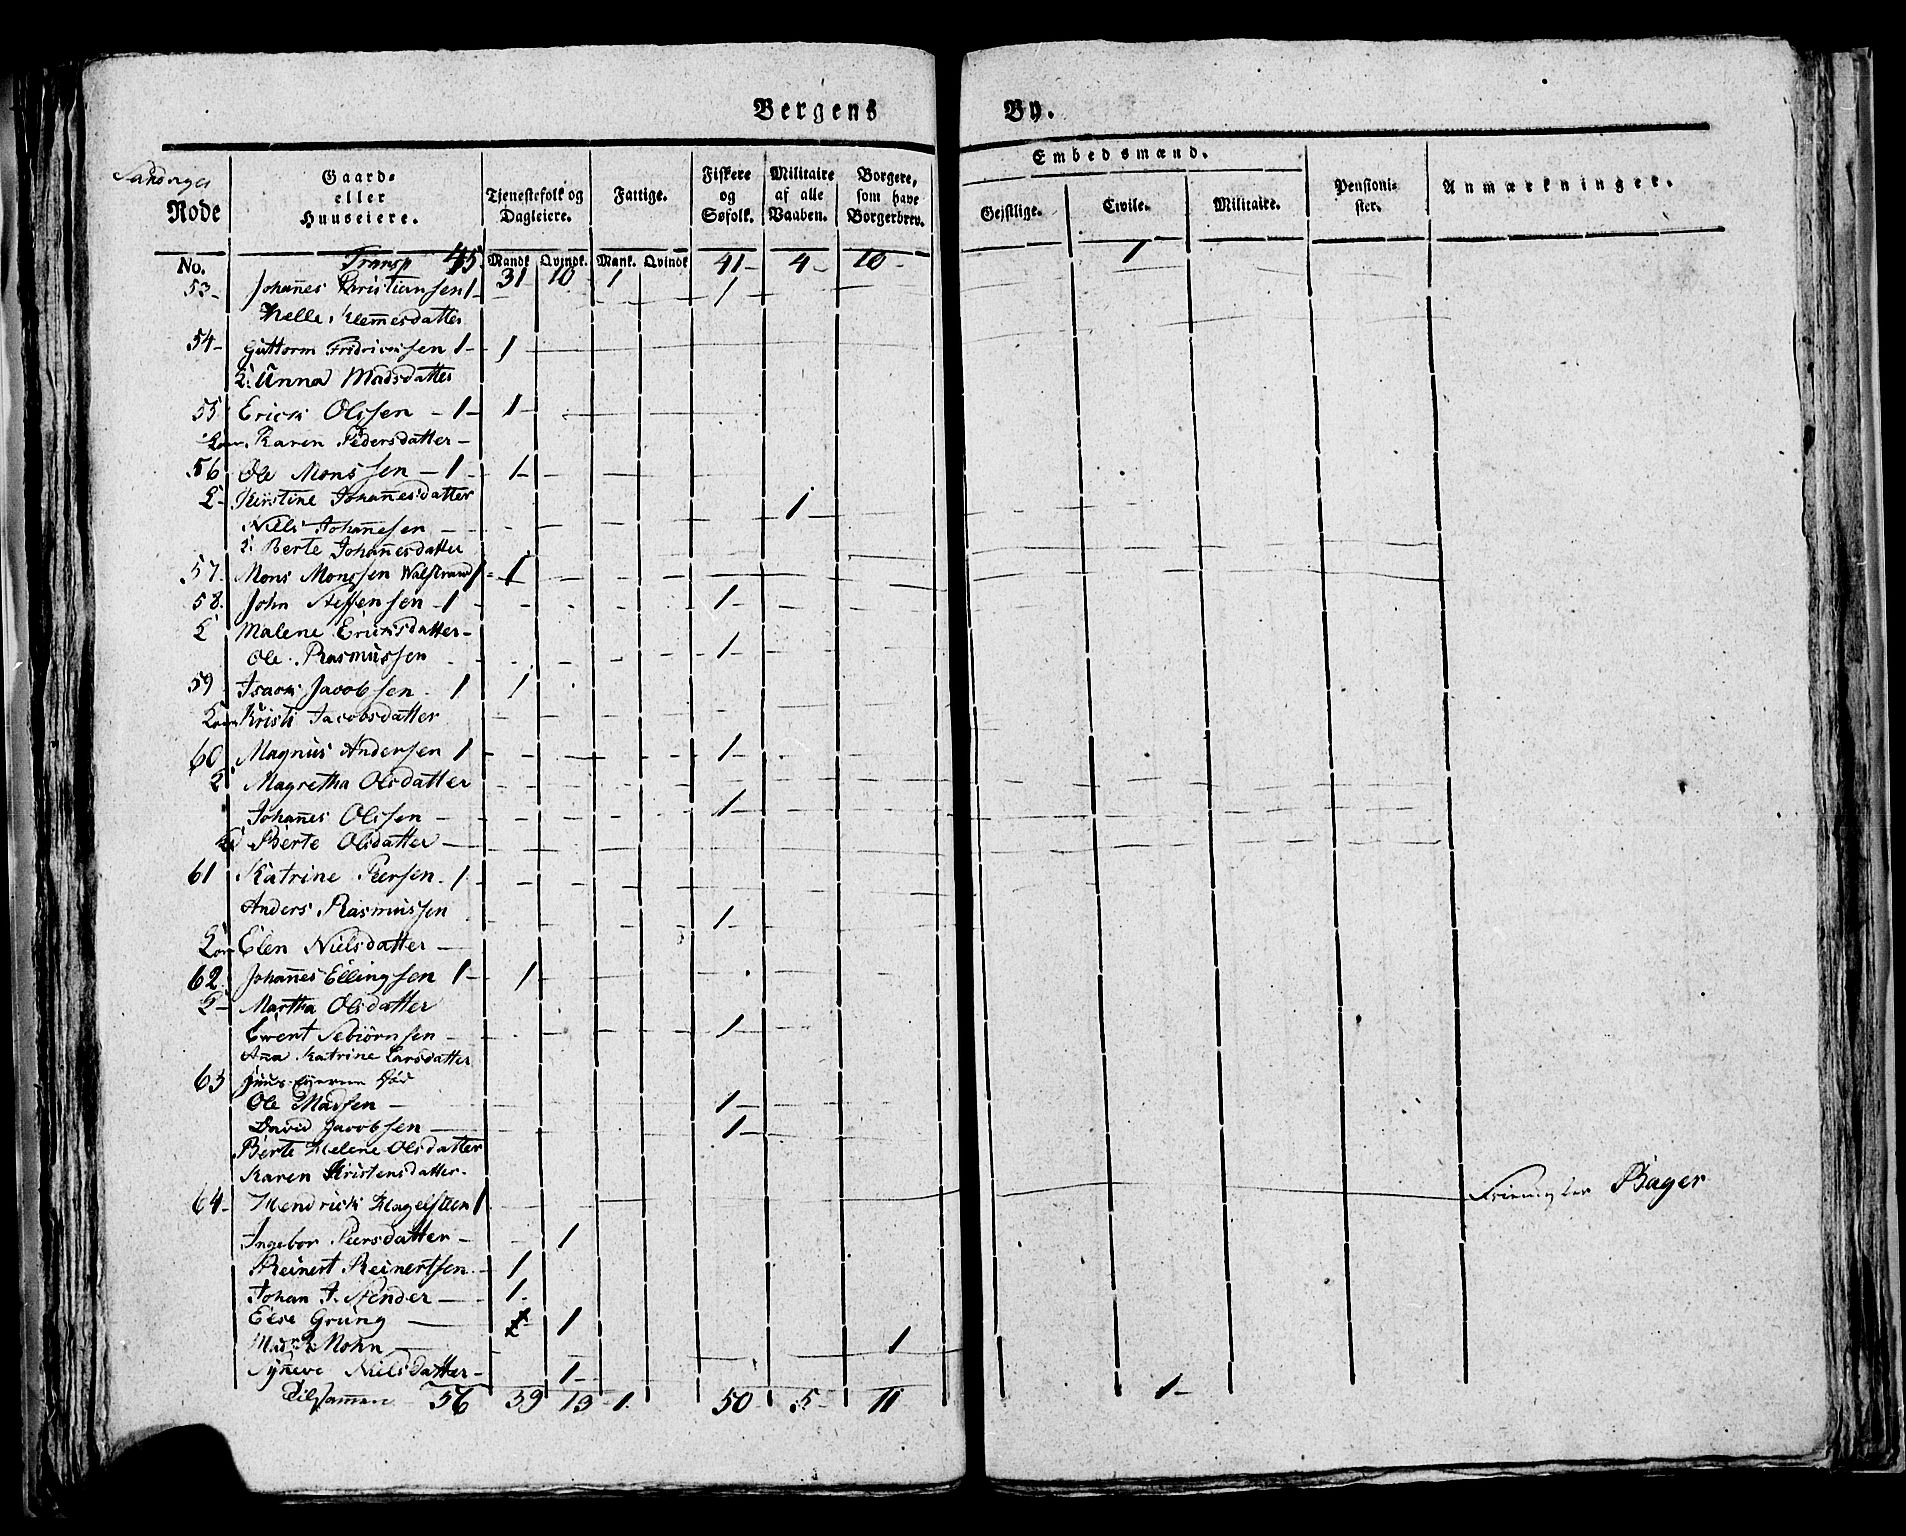 Bergens By.
Sandvigs Rode
Gaard- eller Huuseiere.
Tjenestefolk og Dagleiere.
Fattige.
Fiskere og Søfolk.
Militaire af alle Vaaben.
Borgere, som have Borgerbrev.
Embedsmænd.
Gejstlige.
Civile.
Militaire.
Pensionister.
Anmærkninger.
No. Mandk. Qvindk. Mank. Qvindk.
Transp 45. 31 10 1 41 - 4 - 10 - 1
53 - Johan̄es Christiansen 1 - 1
Helle Klem̄esdatter
54 - Guttorm Fredriksen 1 - 1
Anna Madsdatter
55 Erick Olssen - 1 - 1 -
Karen Pedersdatter -
56 Ole Monssen - 1 - 1 -
Kirstine Johan̄esdatter 1
Niels Johan̄esen -
Berte Johan̄esdatter
57 - Mons Monssen Walstrand 1 - 1
58. John Steffensen - 1 - 1 -
Malene Ericksdatter -
Ole Rasmussen 1 -
59 Isack Jacobsen - 1 1
Kristi Jacobsdatter
60 Magnus Andersen 1 - 1 -
Magretha Olsdatter
Johan̄es Olssen - 1 -
Berte Olsdatter -
61 Katrine Peersen - 1 -
Anders Rasmussen 1 -
Elen Nielsdatter -
62 Johan̄es Ellingsen 1 - 1
Martha Olsdatter
Ewent Sebiörnsen - 1 -
An̄a Katrine Larsdatter
63 Huus Eyeren Död
Ole Madsen - 1 -
David Jacobsen - 1 -
Berte Helene Olsdatter
Karen Kristensdatter -
64 - Hendrick Hagelsteen 1 Bager
Ingebor Peersdatter - 1
Reinert Reinertsen - 1
Johan J. Stender - 1 -
Else Grung - 1
Mohn - 1
Syneve Nielsdatter - 1 -
Tilsam̄en 56 39 13 - 1. 50 5 - 11 1 -